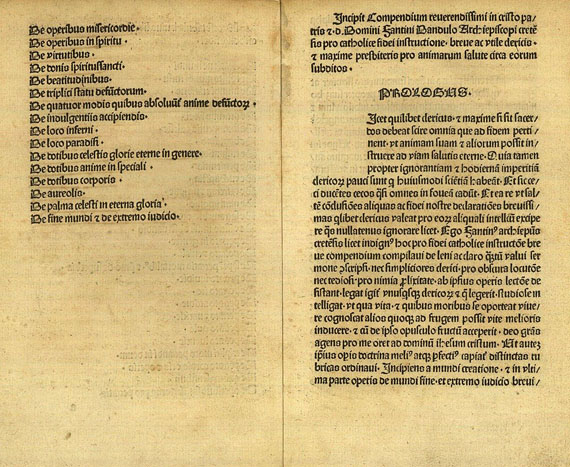 De operibus misericordie·
De operibus in spiritu·
De virtutibus·
De donis spiritussancti·
De beatitudinibus·
De triplici statu defūctorum·
De quatuor modis quibus absoluūt᷑ anime defūctoꝝ·
De indulgentiis accipiendis·
De loco inferni·
De loco paradisi·
De dotibus celestis glorie eterne in genere·
De dotibus anime in speciali·
De dotibus corporis·
De aureolis·
De palma celesti in eterna gloria·
De fine mundi ⁊ de extremo iudicio·
Incipit Compendium reuerendissimi in cristo pa/
tris ⁊·d·Domini Fantini Dandulo Archiepiscopi cretē
sis pro catholice fidei instructione· breue ac vtile clericis·
⁊ maxime presbiteris pro animarum salute circa eorum
subditos·
PROLOGUS·
Icet quilibet clericus· ⁊ maxime si sit sacer/
dos debeat scire omnia que ad fidem perti/
nent· vt animam suam ⁊ aliorum possit in/
struere ad viam salutis eterne· Quia tamen
propter ignorantiam ⁊ hodiernā imperitiā
clericoꝝ pauci sunt q̄ huiusmodi sciētiā habeāt· Et sic ce/
ci ducētes cecos q̄si omnes in foueā cadūt· Et ea re vt sal/
tē cōclusiōes aliquas ac fidei nostre declarationes breuissi/
mas qlibet clericus valeat pro eorū alʼquali intellcū excipe/
re q̄s nullatenus ignorare licet· Ego Fantinꝰ archiepūs
cretēsis licet indignꝰ hoc pro fidei catholice instructōe bre
ue compendium compilaui de leni ac claro q̄ztū valui ser
mone ꝓscripsi· nec simpliciores clerici· pro obscura locutōe
nec tediosi· pro nimia ꝓlixitate· ab ipsius operis lectōe de
sistant· legat igit᷑ vnusqsq; clericoꝝ ⁊ q̄ legerit studiose in
telligat· vt qua vita· ⁊ quibus moribus se oporteat viue/
re cognoscat alios quoq; ad frugem possit vite melioris
inducere· ⁊ cū de ipso opusculo fructū acceperit· deo grās
agens pro me oret ad dominū ihesum cristum· Vt autez
ipsius opis doctrina meliꝰ atq; ꝑfectiꝰ capiat᷑ distinctas ru
bricas ordinaui· Incipiens a mundi creatione· ⁊ in vlti/
ma parte operis de mundi fine· et extremo iudicio breui/